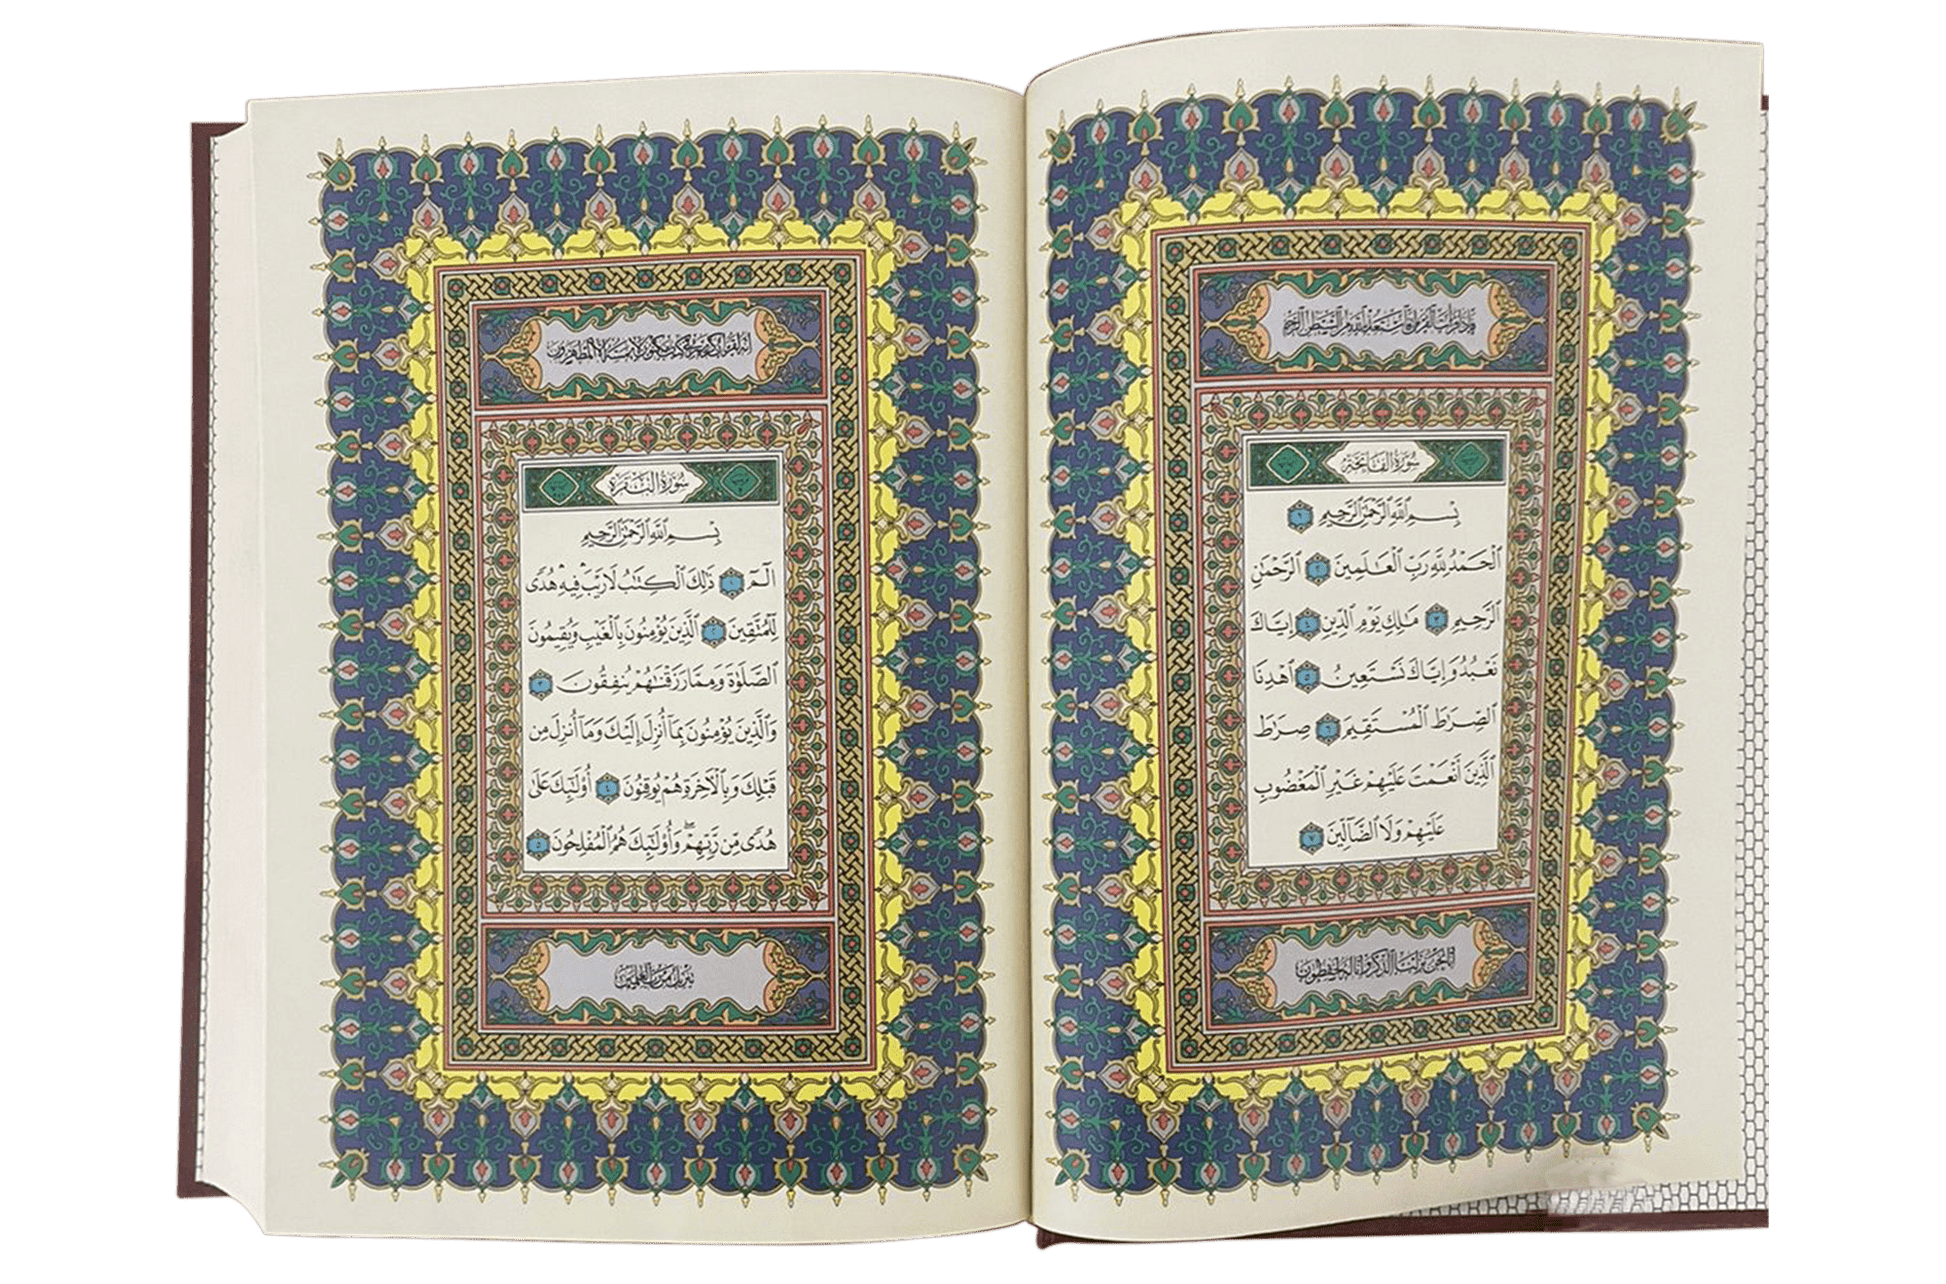 فإذا قرأت القرءان فاستعذ بالله من الشيطن الرجيم
سُورَةُ الفَاتِحَةِ
بِسْمِ ٱللَّهِ ٱلرَّحْمَٰنِ ٱلرَّحِيمِ ١
ٱلْحَمْدُ لِلَّهِ رَبِّ ٱلْعَٰلَمِينَ ٢ ٱلرَّحْمَٰنِ
ٱلرَّحِيمِ ٣ مَٰلِكِ يَوْمِ ٱلدِّينِ ٤ إِيَّاكَ
نَعْبُدُ وَإِيَّاكَ نَسْتَعِينُ ٥ ٱهْدِنَا
ٱلصِّرَٰطَ ٱلْمُسْتَقِيمَ ٦ صِرَٰطَ
ٱلَّذِينَ أَنْعَمْتَ عَلَيْهِمْ غَيْرِ ٱلْمَغْضُوبِ
عَلَيْهِمْ وَلَا ٱلضَّآلِّينَ ٧
إنا نحن نزلنا الذكر وإنا له لحفظون
إنه لقرءان كريم في كتب مكنون لا يمسه إلا المطهرون
سُورَةُ البَقَرَةِ
بِسْمِ ٱللَّهِ ٱلرَّحْمَٰنِ ٱلرَّحِيمِ
الٓمٓ ١ ذَٰلِكَ ٱلْكِتَٰبُ لَا رَيْبَ فِيهِ هُدًى
لِّلْمُتَّقِينَ ٢ ٱلَّذِينَ يُؤْمِنُونَ بِٱلْغَيْبِ وَيُقِيمُونَ
ٱلصَّلَوٰةَ وَمِمَّا رَزَقْنَٰهُمْ يُنفِقُونَ ٣
وَٱلَّذِينَ يُؤْمِنُونَ بِمَآ أُنزِلَ إِلَيْكَ وَمَآ أُنزِلَ مِن
قَبْلِكَ وَبِٱلْأَخِرَةِ هُمْ يُوقِنُونَ ٤ أُو۟لَٰٓئِكَ عَلَىٰ
هُدًى مِّن رَّبِّهِمْ ۖ وَأُو۟لَٰٓئِكَ هُمُ ٱلْمُفْلِحُونَ ٥
تنزيل من رب العلمين